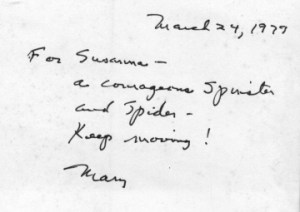 March 24, 1977
For Susanne -
a courageous Spinster
and Spider -
Keep moving!
Mary